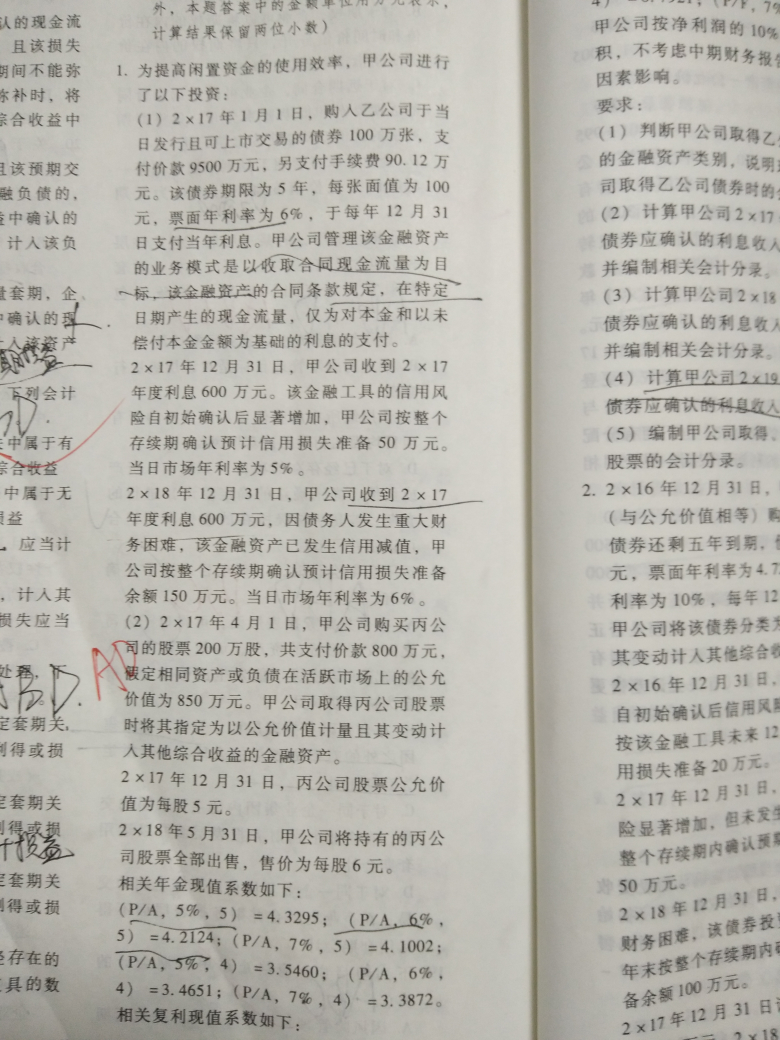 认的现金流
且该损失
期间不能弥
弥补时，将
综合收益中
且该预期交
融负债的，
益中确认的
计入该负
量套期，企
中确认的现
计入该资产
下列会计
失中属于有
综合收益
中属于无
损益
，应当计
，计入其
损失应当
处理，下
定套期关
利得或损
定套期关
利得或损
定套期关
利得或损
经存在的
工具的数
ABD.
AD
外，本题答案中的金额单位用万元表示，
计算结果保留两位小数）
1. 为提高闲置资金的使用效率，甲公司进行
了以下投资：
（1）2×17年1月1日，购入乙公司于当
日发行且可上市交易的债券100万张，支
付价款9500万元，另支付手续费90.12万
元。该债券期限为5年，每张面值为100
元，票面年利率为6%，于每年12月31
日支付当年利息。甲公司管理该金融资产
的业务模式是以收取合同现金流量为目
标，该金融资产的合同条款规定，在特定
日期产生的现金流量，仅为对本金和以未
偿付本金金额为基础的利息的支付。
2×17年12月31日，甲公司收到2×17
年度利息600万元。该金融工具的信用风
险自初始确认后显著增加，甲公司按整个
存续期确认预计信用损失准备50万元。
当日市场年利率为5%。
2×18年12月31日，甲公司收到2×17
年度利息600万元，因债务人发生重大财
务困难，该金融资产已发生信用减值，甲
公司按整个存续期确认预计信用损失准备
余额150万元。当日市场年利率为6%。
（2）2×17年4月1日，甲公司购买丙公
司的股票200万股，共支付价款800万元，
假定相同资产或负债在活跃市场上的公允
价值为850万元。甲公司取得丙公司股票
时将其指定为以公允价值计量且其变动计
入其他综合收益的金融资产。
2×17年12月31日，丙公司股票公允价
值为每股5元。
2×18年5月31日，甲公司将持有的丙公
司股票全部出售，售价为每股6元。
相关年金现值系数如下：
（P/A，5%，5）=4.3295；（P/A，6%，
5）=4.2124；（P/A，7%，5）=4.1002；
（P/A，5%，4）=3.5460；（P/A，6%，
4）=3.4651；（P/A，7%，4）=3.3872。
相关复利现值系数如下：
甲公司按净利润的10%
积，不考虑中期财务报告
因素影响。
要求：
（1）判断甲公司取得乙公
的金融资产类别，说明
司取得乙公司债券时的
（2）计算甲公司2×17
债券应确认的利息收入
并编制相关会计分录。
（3）计算甲公司2×18
债券应确认的利息收入
并编制相关会计分录。
（4）计算甲公司2×19
债券应确认的利息收入
（5）编制甲公司取得、
股票的会计分录。
2. 2×16年12月31日，
（与公允价值相等）购
债券还剩五年到期，
元，票面年利率为4.7
利率为10%，每年12
甲公司将该债券分类为
其变动计入其他综合收
2×16年12月31日，
自初始确认后信用风险
按该金融工具未来12
用损失准备20万元。
2×17年12月31日，
险显著增加，但未发生
整个存续期内确认预期
50万元。
2×18年12月31日，
财务困难，该债券投资
年末按整个存续期内确
备余额100万元。
2×17年12月31日